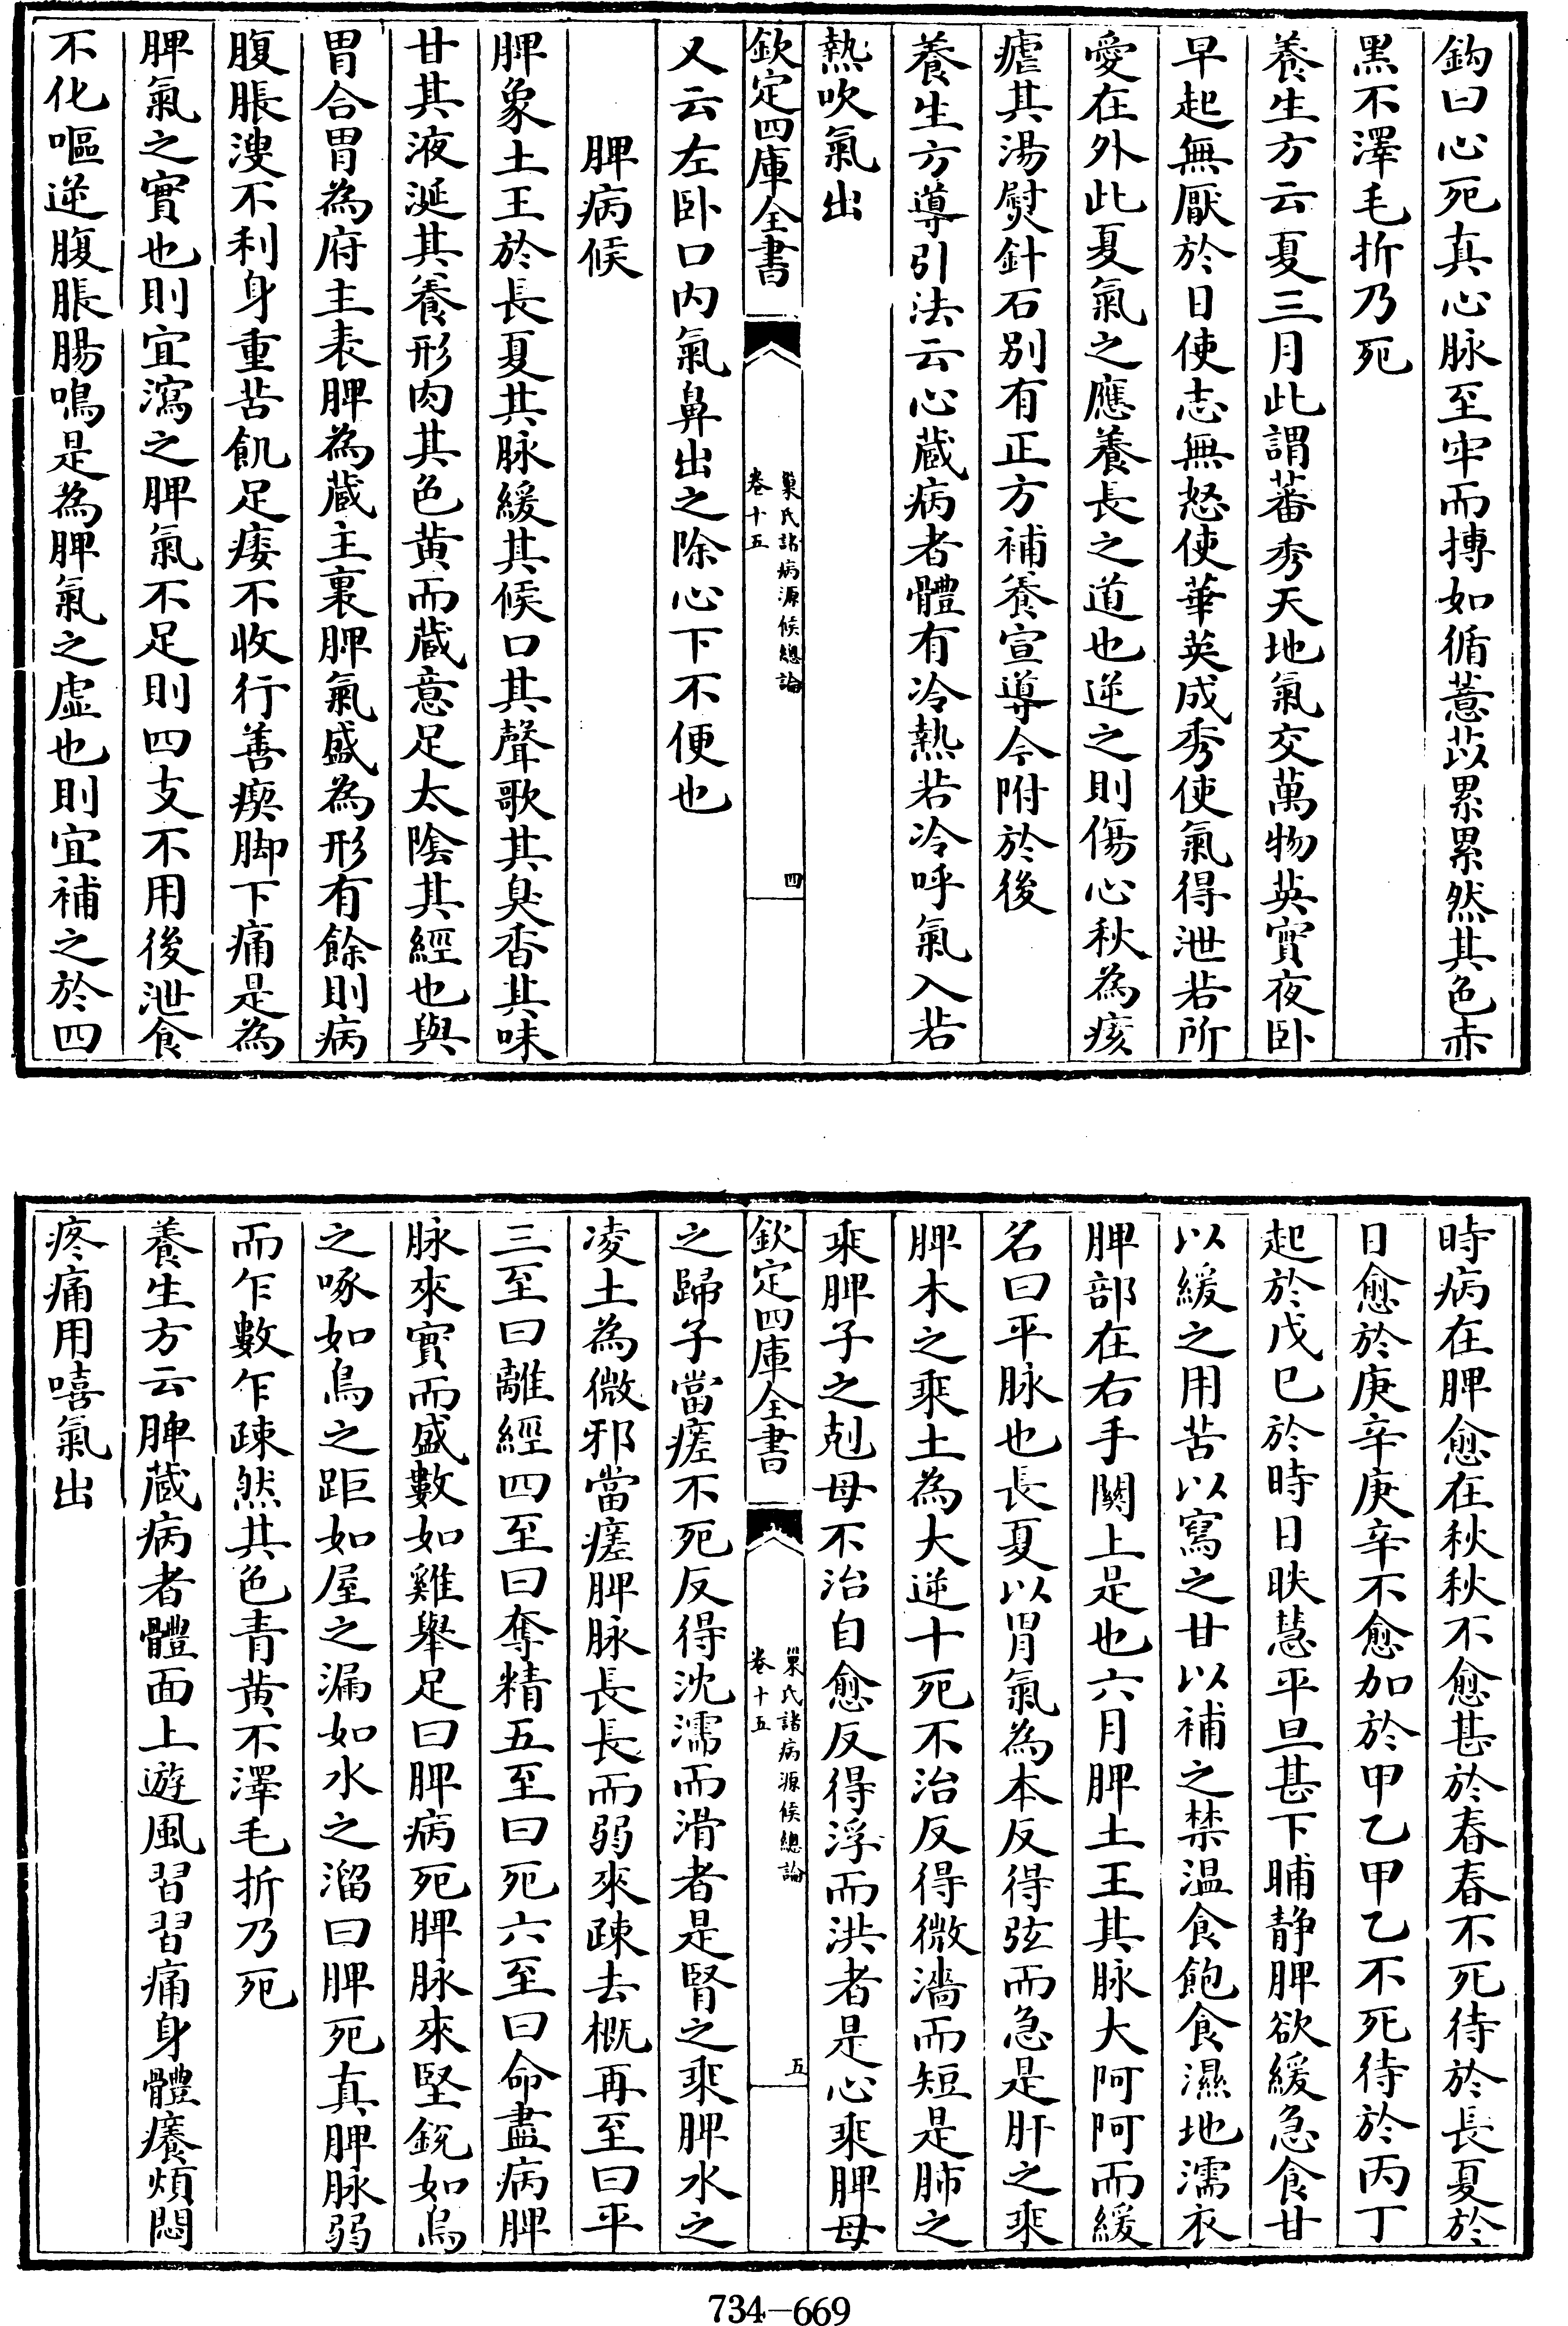 鈎曰心死真心脉至牢而摶如循薏苡累累然其色赤
黑不澤毛折乃死
養生方云夏三月此謂蕃秀天地氣交萬物英實夜卧
早起無厭於日使志無怒使華英成秀使氣得泄若所
愛在外此夏氣之應養長之道也逆之則傷心秋為痎
瘧其湯熨針石别有正方補養宣導今附於後
養生方導引法云心蔵病者體有冷熱若冷呼氣入若
熱吹氣出
欽定四庫全書
巢氏諸病源候總論
卷十五
四
又云左卧口内氣鼻出之除心下不便也
脾病候
脾象土王於長夏其脉緩其候口其聲歌其臭香其味
甘其液涎其養形肉其色黄而蔵意足太陰其經也與
胃合胃為府主表脾為蔵主裏脾氣盛為形有餘則病
腹脹溲不利身重苦飢足痿不收行善瘈脚下痛是為
脾氣之實也則宜瀉之脾氣不足則四支不用後泄食
不化嘔逆腹脹腸鳴是為脾氣之虛也則宜補之於四
時病在脾愈在秋秋不愈甚於春春不死待於長夏於
日愈於庚辛庚辛不愈加於甲乙甲乙不死待於丙丁
起於戊巳於時日昳慧平旦甚下晡静脾欲緩急食甘
以緩之用苦以寫之甘以補之禁温食飽食濕地濡衣
脾部在右手闗上是也六月脾土王其脉大阿阿而緩
名曰平脉也長夏以胃氣為本反得弦而急是肝之乘
脾木之乘土為大逆十死不治反得微濇而短是肺之
乘脾子之剋母不治自愈反得浮而洪者是心乘脾母
欽定四庫全書
巢氏諸病源候總論
卷十五
五
之歸子當瘥不死反得沈濡而滑者是腎之乘脾水之
凌土為微邪當瘥脾脉長長而弱來疎去概再至曰平
三至曰離經四至曰奪精五至曰死六至曰命盡病脾
脉來實而盛數如雞舉足曰脾病死脾脉來堅鋭如烏
之啄如鳥之距如屋之漏如水之溜曰脾死真脾脉弱
而乍數乍疎然其色青黄不澤毛折乃死
養生方云脾蔵病者體面上遊風習習痛身體癢煩悶
疼痛用嘻氣出
734—669